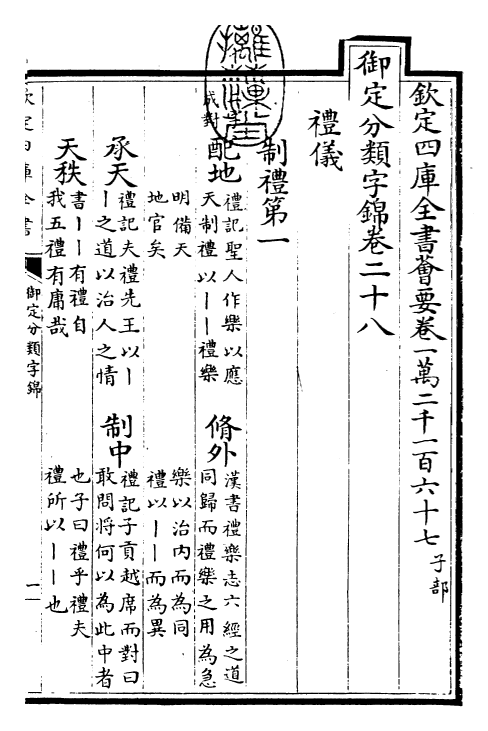 欽定四庫全書薈要卷一萬二千一百六十七 子部
御定分類字錦卷二十八
禮儀
制禮第一
摛藻堂
成對
配地
禮記聖人作樂以應
天制禮以丨丨禮樂
明備天
地官矣
脩外
漢書禮樂志六經之道
同歸而禮樂之用為急
樂以治內而為同
禮以丨丨而為異
承天
禮記夫禮先王以丨
丨之道以治人之情
制中
禮記子貢越席而對曰
敢問將何以為此中者
也子曰禮乎禮夫
禮所以丨丨也
天秩
書丨丨有禮自
我五禮有庸哉
欽定四庫全書
御定分類字錦
一